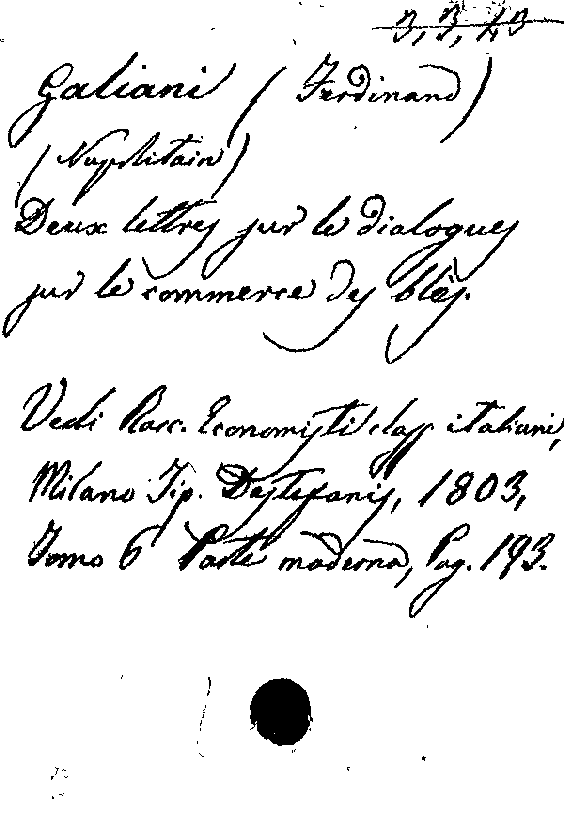 3, 3, 43
Galiani ( Ferdinand )
( Napolitain )
Deux lettres sur le dialogues
sur le commerce des blès.
Vedi Racc. Economisti class italiani,
Milano Tip. Destefanis, 1803,
Tomo 6 Parte moderna, Pag. 193.